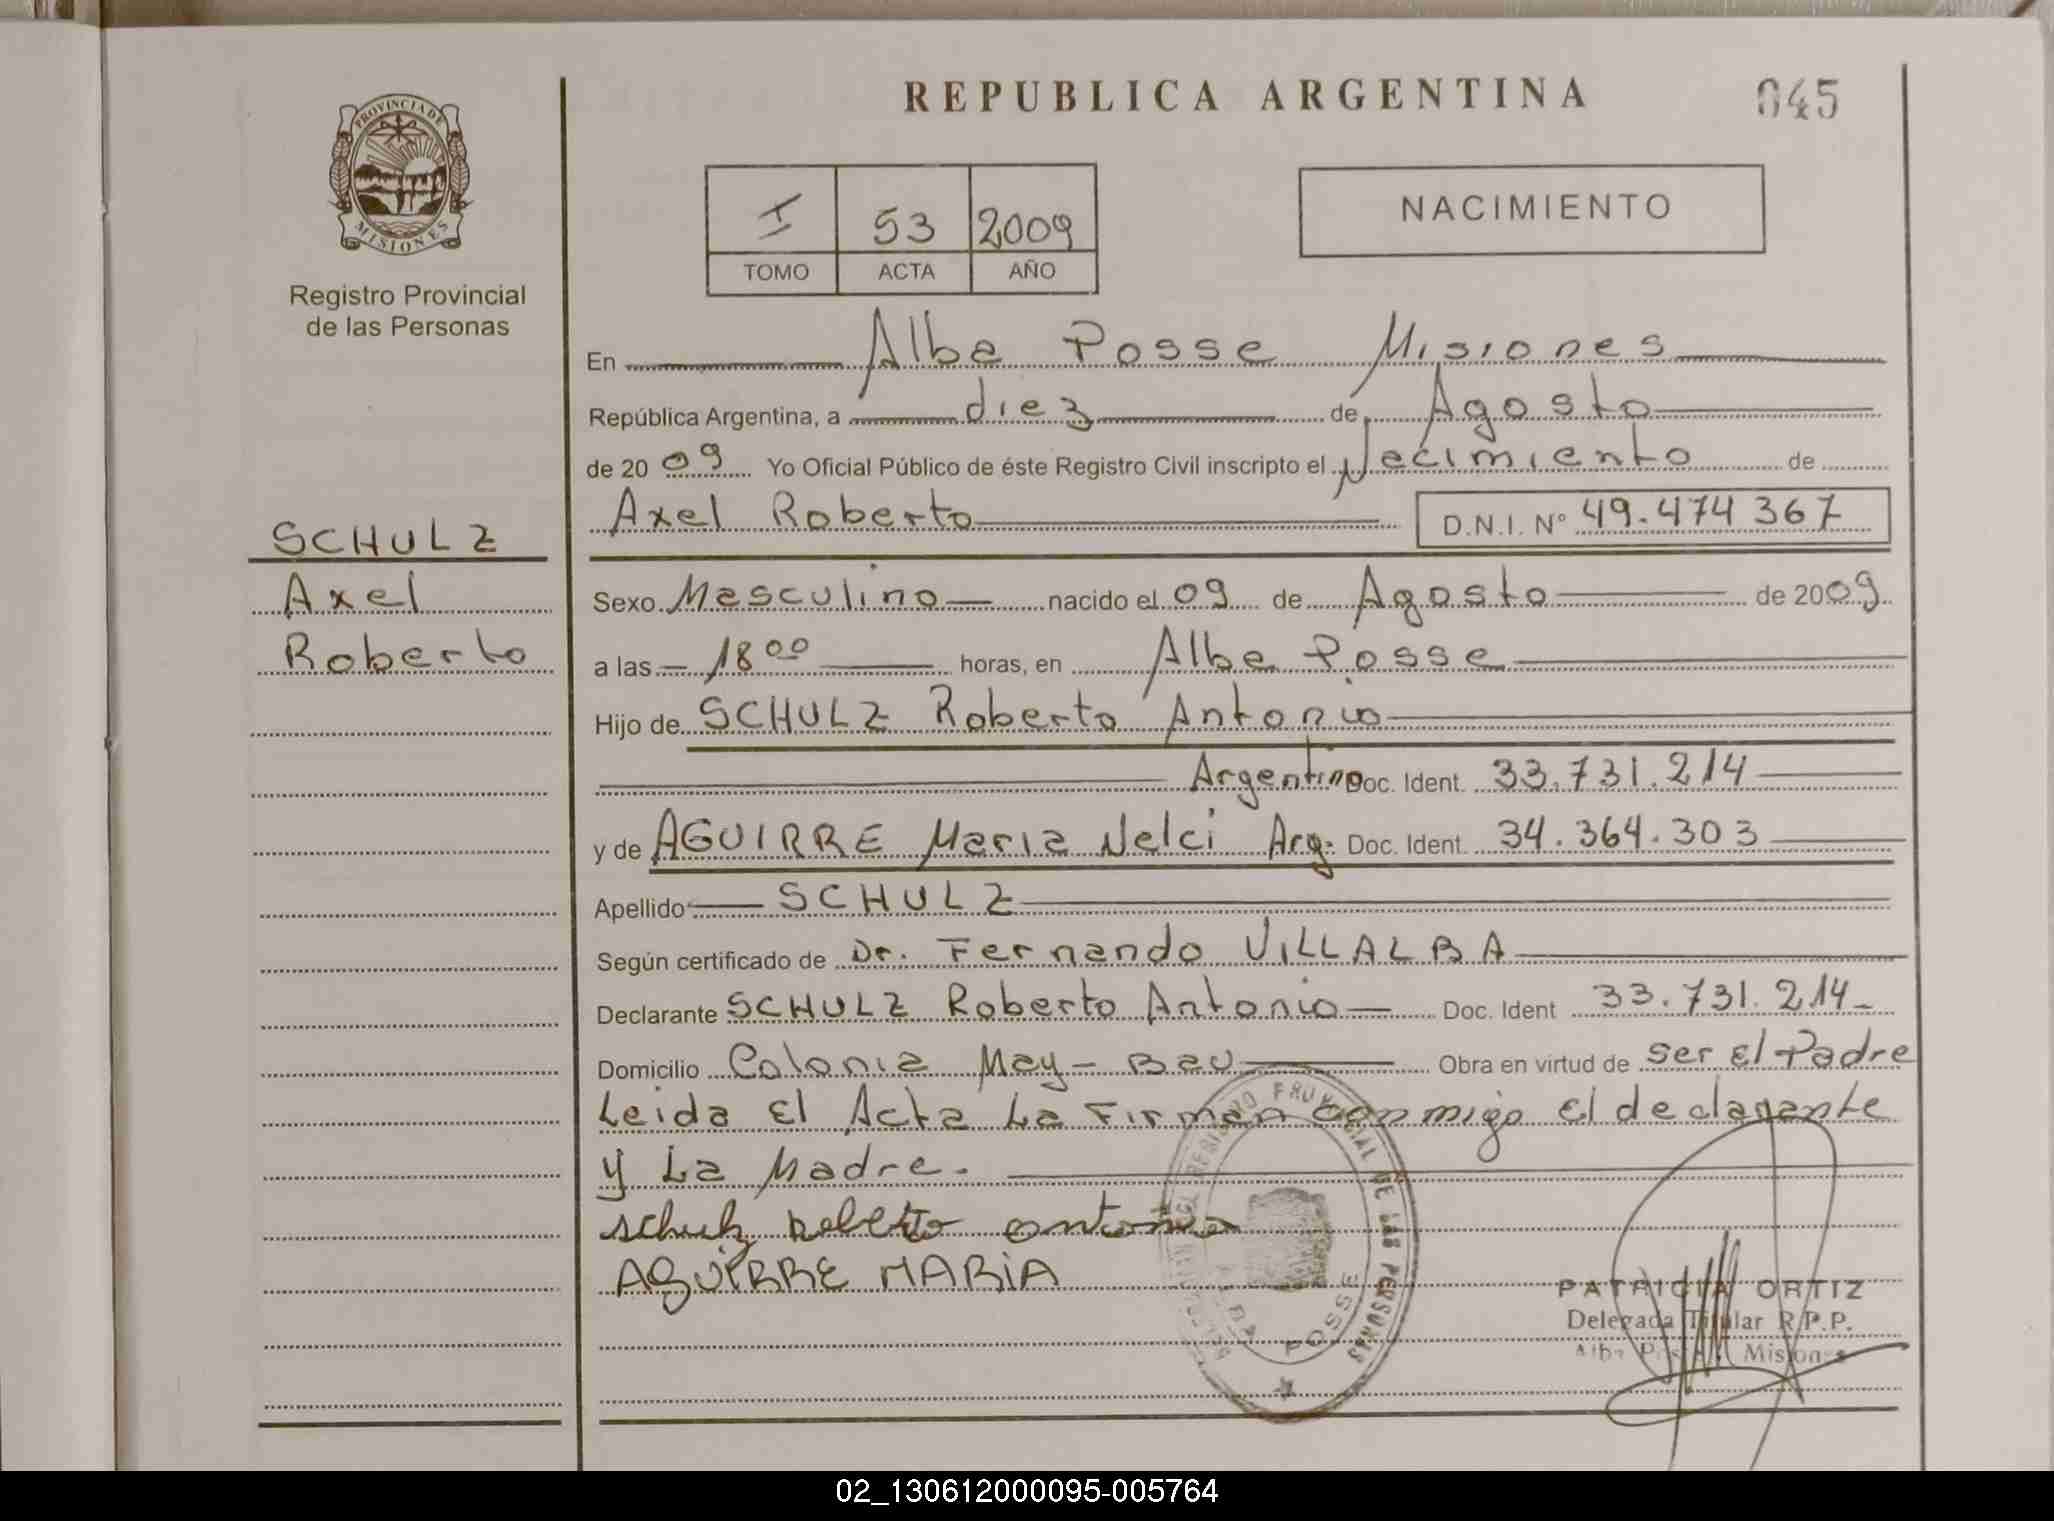 REPUBLICA ARGENTINA
045
PROVINCIA DE
MISIONES
Registro Provincial
de las Personas
I 53 2009
TOMO ACTA AÑO
NACIMIENTO
En Alba Posse Misiones
República Argentina, a diez de Agosto
de 2009 Yo Oficial Público de éste Registro Civil inscripto el Nacimiento de
Axel Roberto D.N.I. Nº 49.474 367
SCHULZ
Axel
Roberto
Sexo Masculino nacido el 09 de Agosto de 2009
a las 18 00 horas, en Alba Posse
Hijo de SCHULZ Roberto Antonio
Argentino Doc. Ident. 33.731.214
y de AGUIRRE Maria Nelci Arg. Doc. Ident. 34.364.303
Apellido SCHULZ
Según certificado de Dr. Fernando VILLALBA
Declarante SCHULZ Roberto Antonio Doc. Ident 33.731.214
Domicilio Colonia May-Bau Obra en virtud de ser El Padre
Leida El Acta La Firman conmigo El declarante
y La Madre.
Schulz Roberto antonio
AGUIRRE MARIA
REGISTRO PROVINCIAL DE LAS PERSONAS
ALBA POSSE
PATRICIA ORTIZ
Delegada Titular R.P.P.
Alba Posse Misiones
02_130612000095-005764